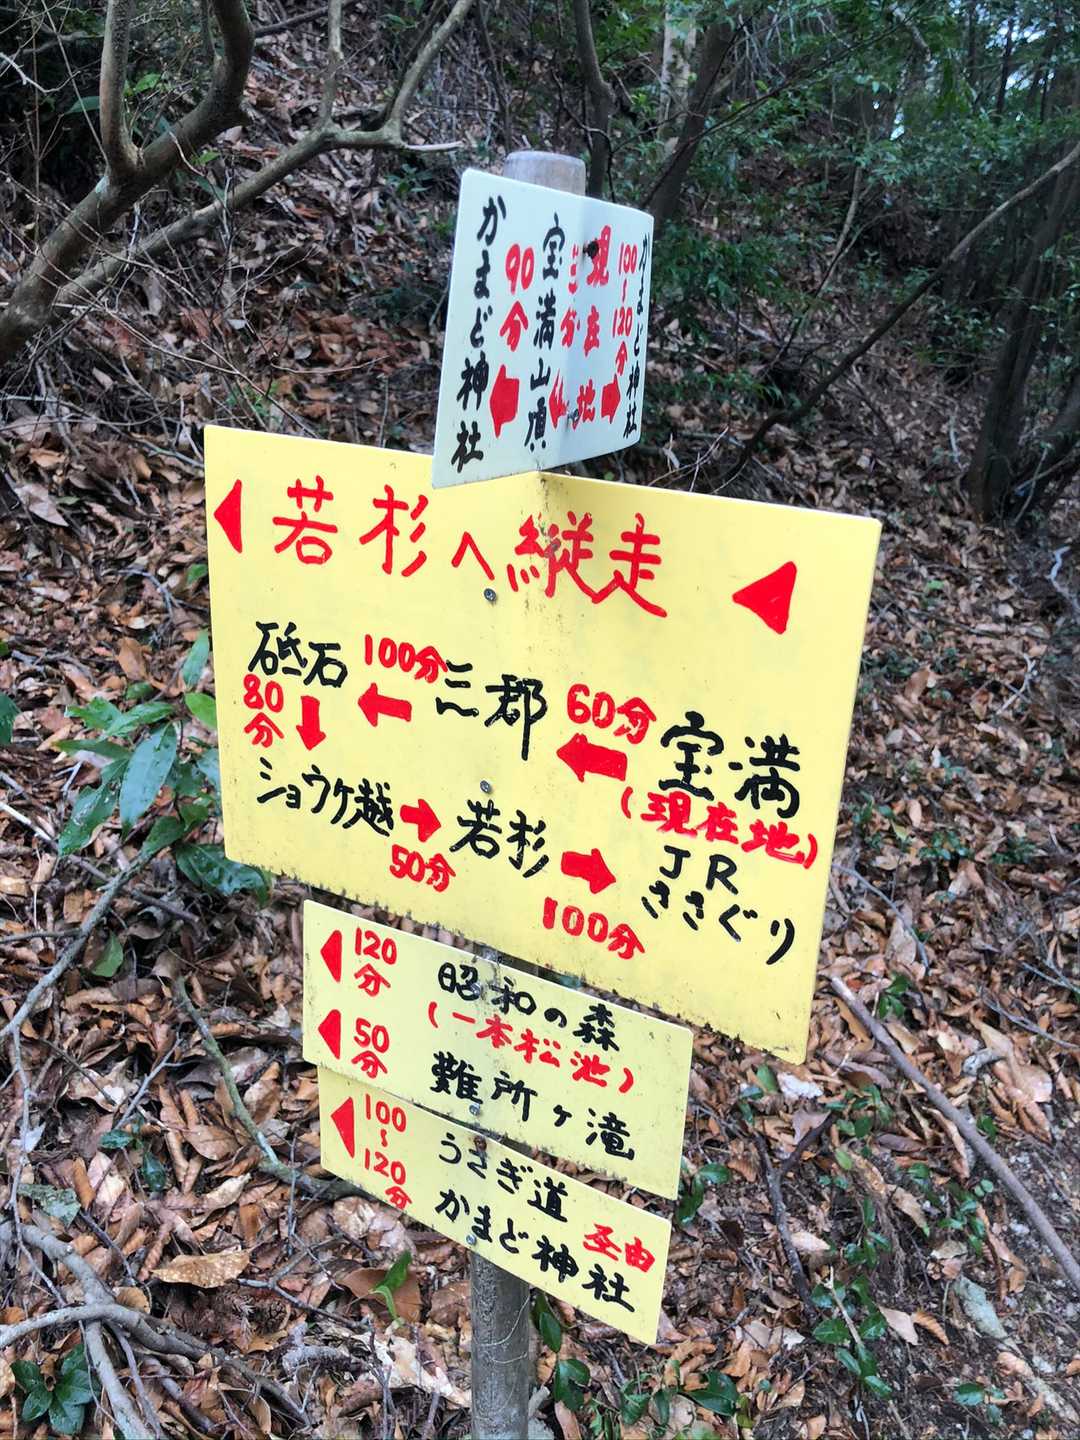 かまど神社
90分
宝満山頂
現在地
100〜120分
かまど神社
若杉へ縦走
砥石 100分 三郡 60分 宝満
(現在地)
80分
ショウケ越 50分 若杉 100分 JRささぐり
120分 昭和の森
(一本松池)
50分 難所ヶ滝
100〜120分 うさぎ道
かまど神社